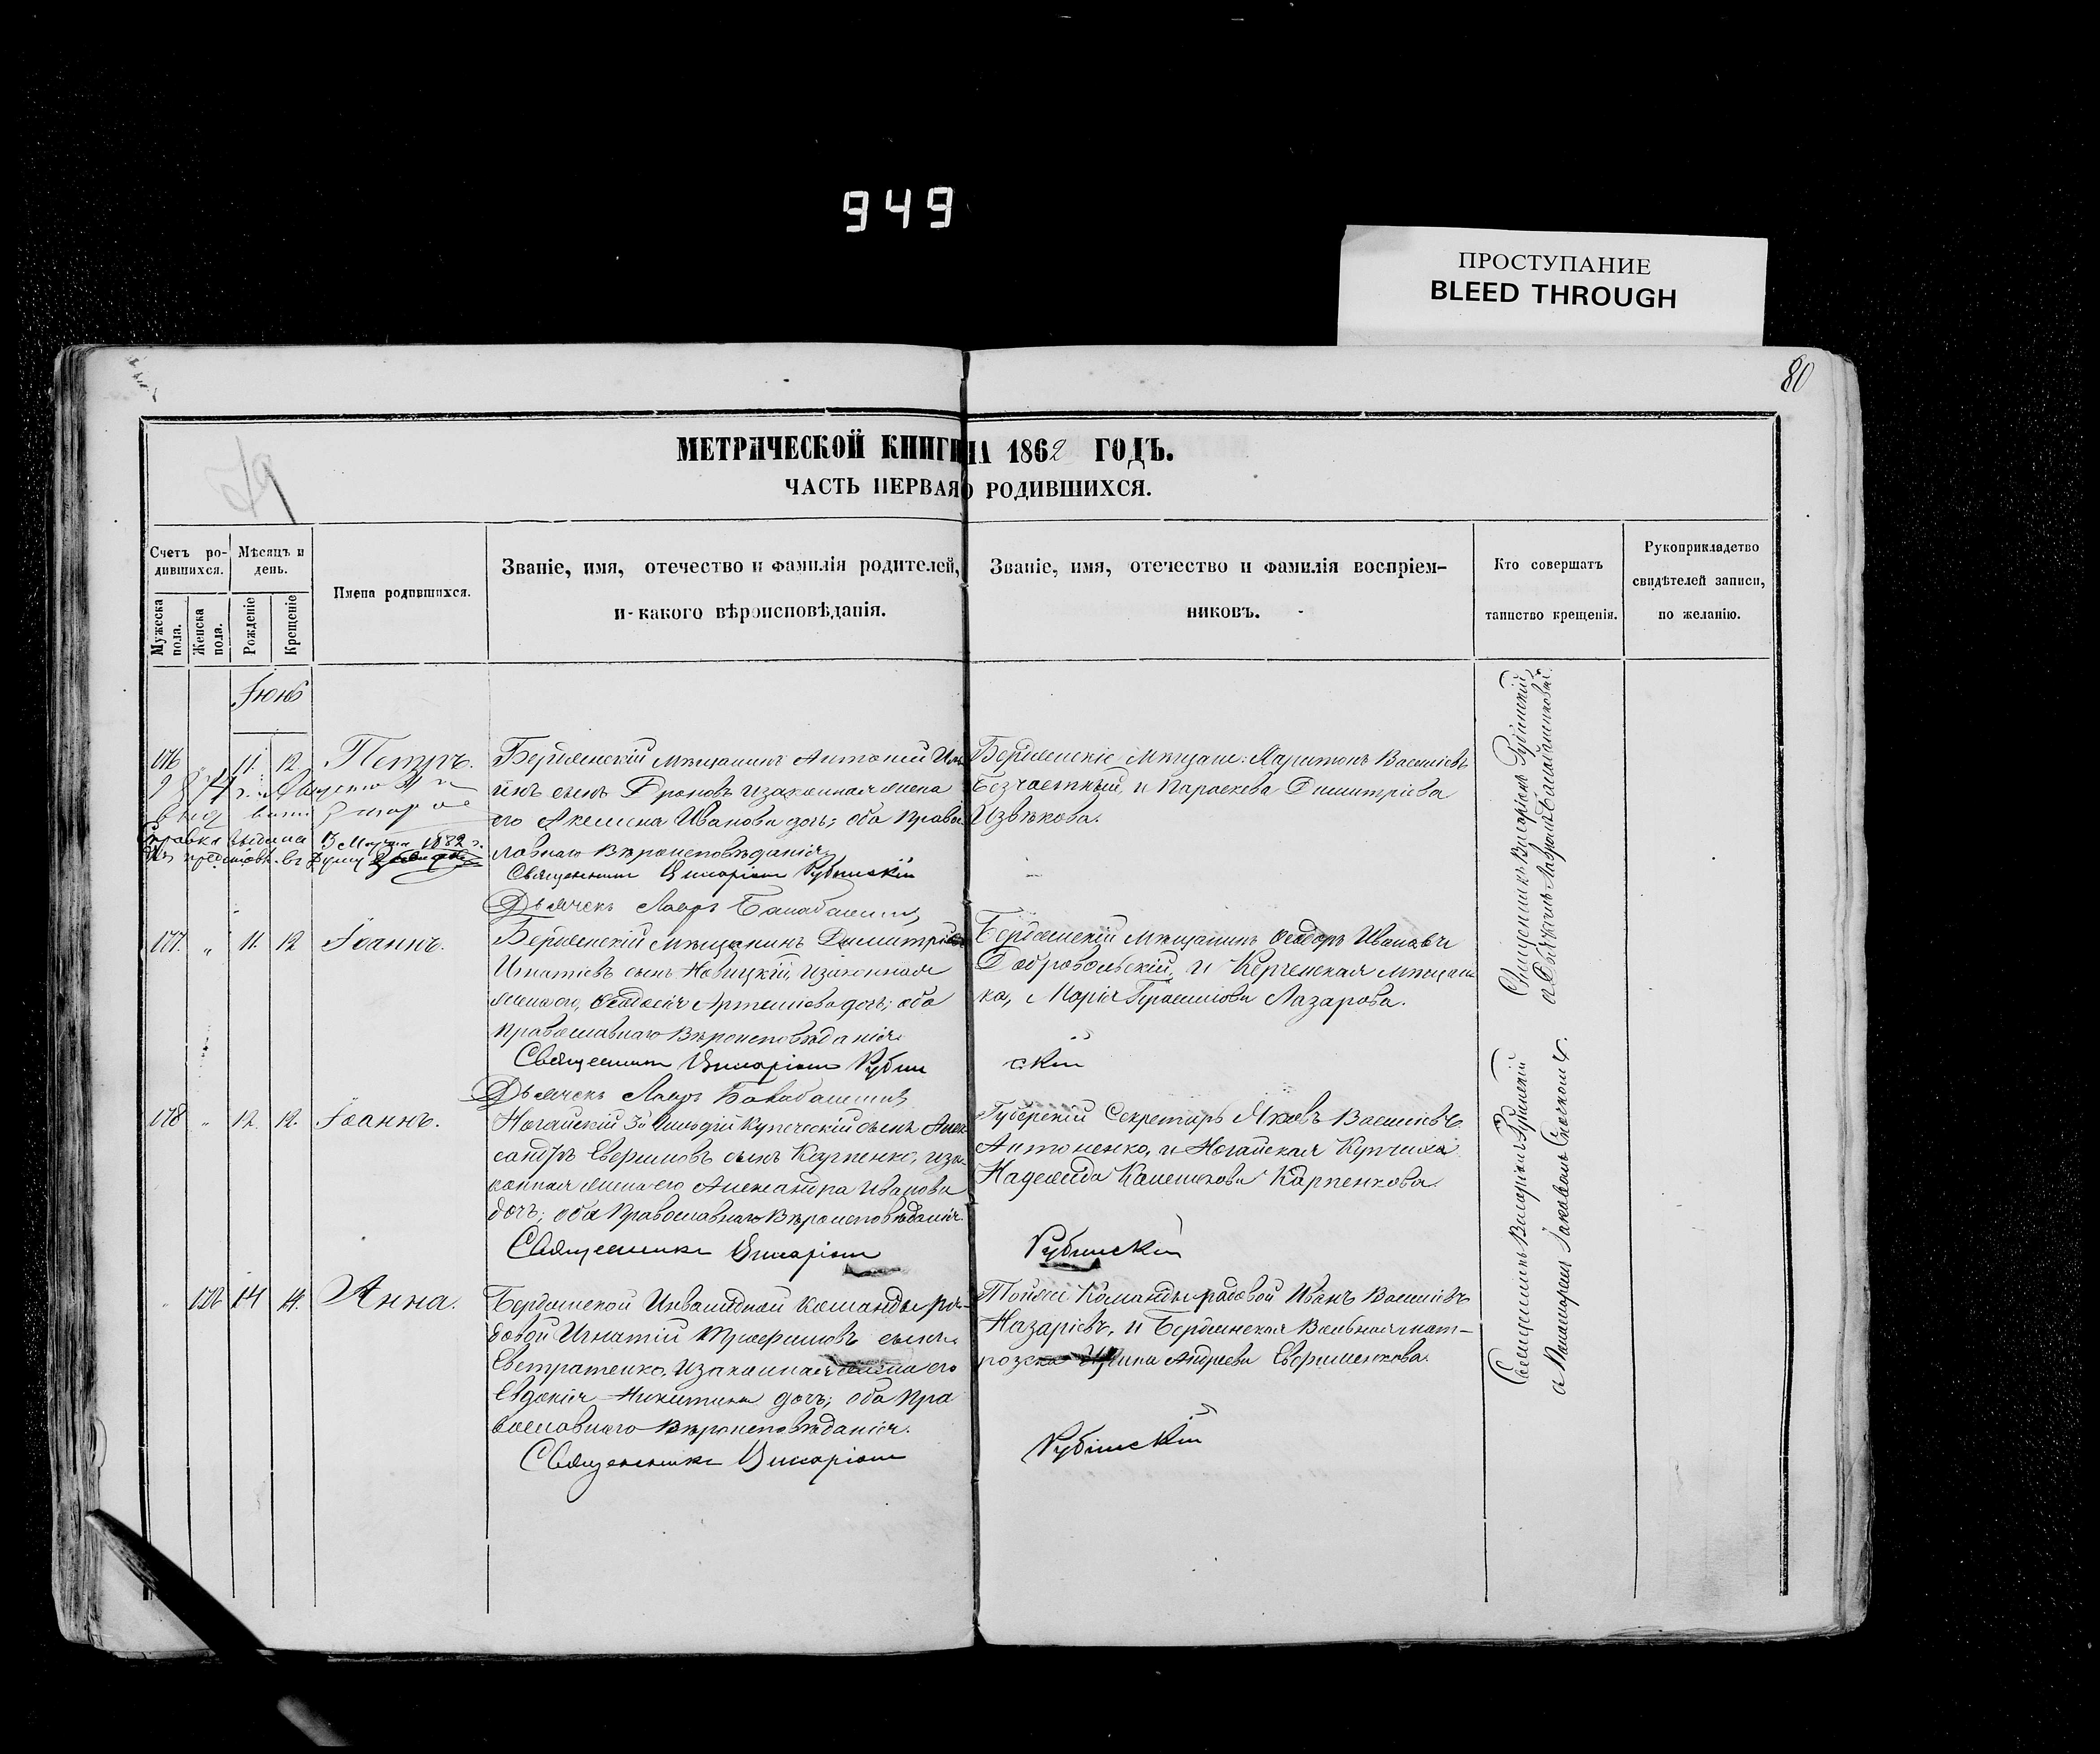 949
ПРОСТУПАНИЕ
BLEED THROUGH
80
79
МЕТРИЧЕСКОЙ КНИГИ НА 1862 ГОДЪ.
ЧАСТЬ ПЕРВАЯ О РОДИВШИХСЯ.
Счетъ ро-
дившихся.
Мужеска пола.
Женска пола.
Мѣсяцъ и
день.
Рожденіе
Крещеніе
Имена родившихся.
Званіе, имя, отечество и фамилія родителей,
и какого вѣроисповѣданія.
Званіе, имя, отечество и фамилія воспріем-
никовъ.
Кто совершалъ
таинство крещенія.
Рукоприкладство
свидѣтелей записи,
по желанію.
Іюнь
176 11. 12 Петръ.
Бердянскій мѣщанинъ Антоній
сынъ Дроновъ изаконная жена
его Акелина Иванова дочь; оба Право
славнаго Вѣроисповѣданія
Священникъ Виссаріонъ Рубинскій
Дьячекъ Лавръ
Бердянскіе мѣщане: Харитонъ Василіевъ
Безчастный, и Параскева Димитріева
Извѣкова.
Справка выдана 3 Марта 1882 г.
177. " 11. 12 Іоаннъ.
Бердянскій мѣщанинъ Димитрій
Игнатіевъ сынъ Новицкій, изаконная
жена его, Ѳеодосія Артеміева дочь; оба
Православнаго Вѣроисповѣданія
Священникъ Виссаріонъ Рубин
скій
Дьячекъ Лавръ
Бердянскій мѣщанинъ Ѳеодоръ Ивановъ
Добровольскій, и Керченская мѣщан
ка, Марія Герасимова Лазарова.
178 " 12. 12. Іоаннъ.
Ногайскій 3й Гильдіи Купеческій сынъ Алек
сандръ Ефремовъ сынъ Карпенко, иза
конная жена его Александра Иванова
дочь; оба Православнаго Вѣроисповѣданія.
Священникъ Виссаріонъ Рубинскій
Губернскій Секретарь Яковъ Василіевъ
Антоненко, и Ногайская Купчиха
Надежда Карпенкова.
" 14 14. Анна.
Бердянской Инвалидной команды ря-
довой Игнатій Трофимовъ сынъ
Евстратенко, изаконная жена его
Евдокія Никитина дочь; оба Пра
вославнаго Вѣроисповѣданія.
Священникъ Виссаріонъ Рубинскій
Тойже Команды рядовой Иванъ Василіевъ
Назаріевъ, и Бердянская Вольная мат-
розска Ирина Андреева
Священникъ Виссаріонъ Рубинскій
Священникъ Виссаріонъ Рубинскій